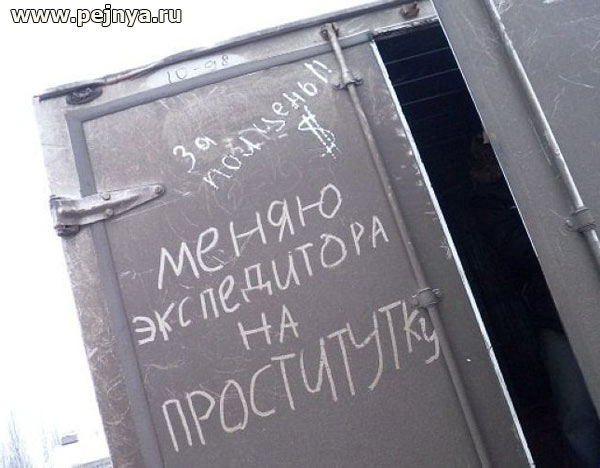 www.pejnya.ru
10-98
За
полцены!!
$
Меняю
экспедитора
на
проститутку